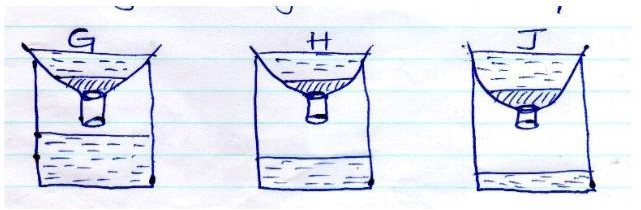 G H J